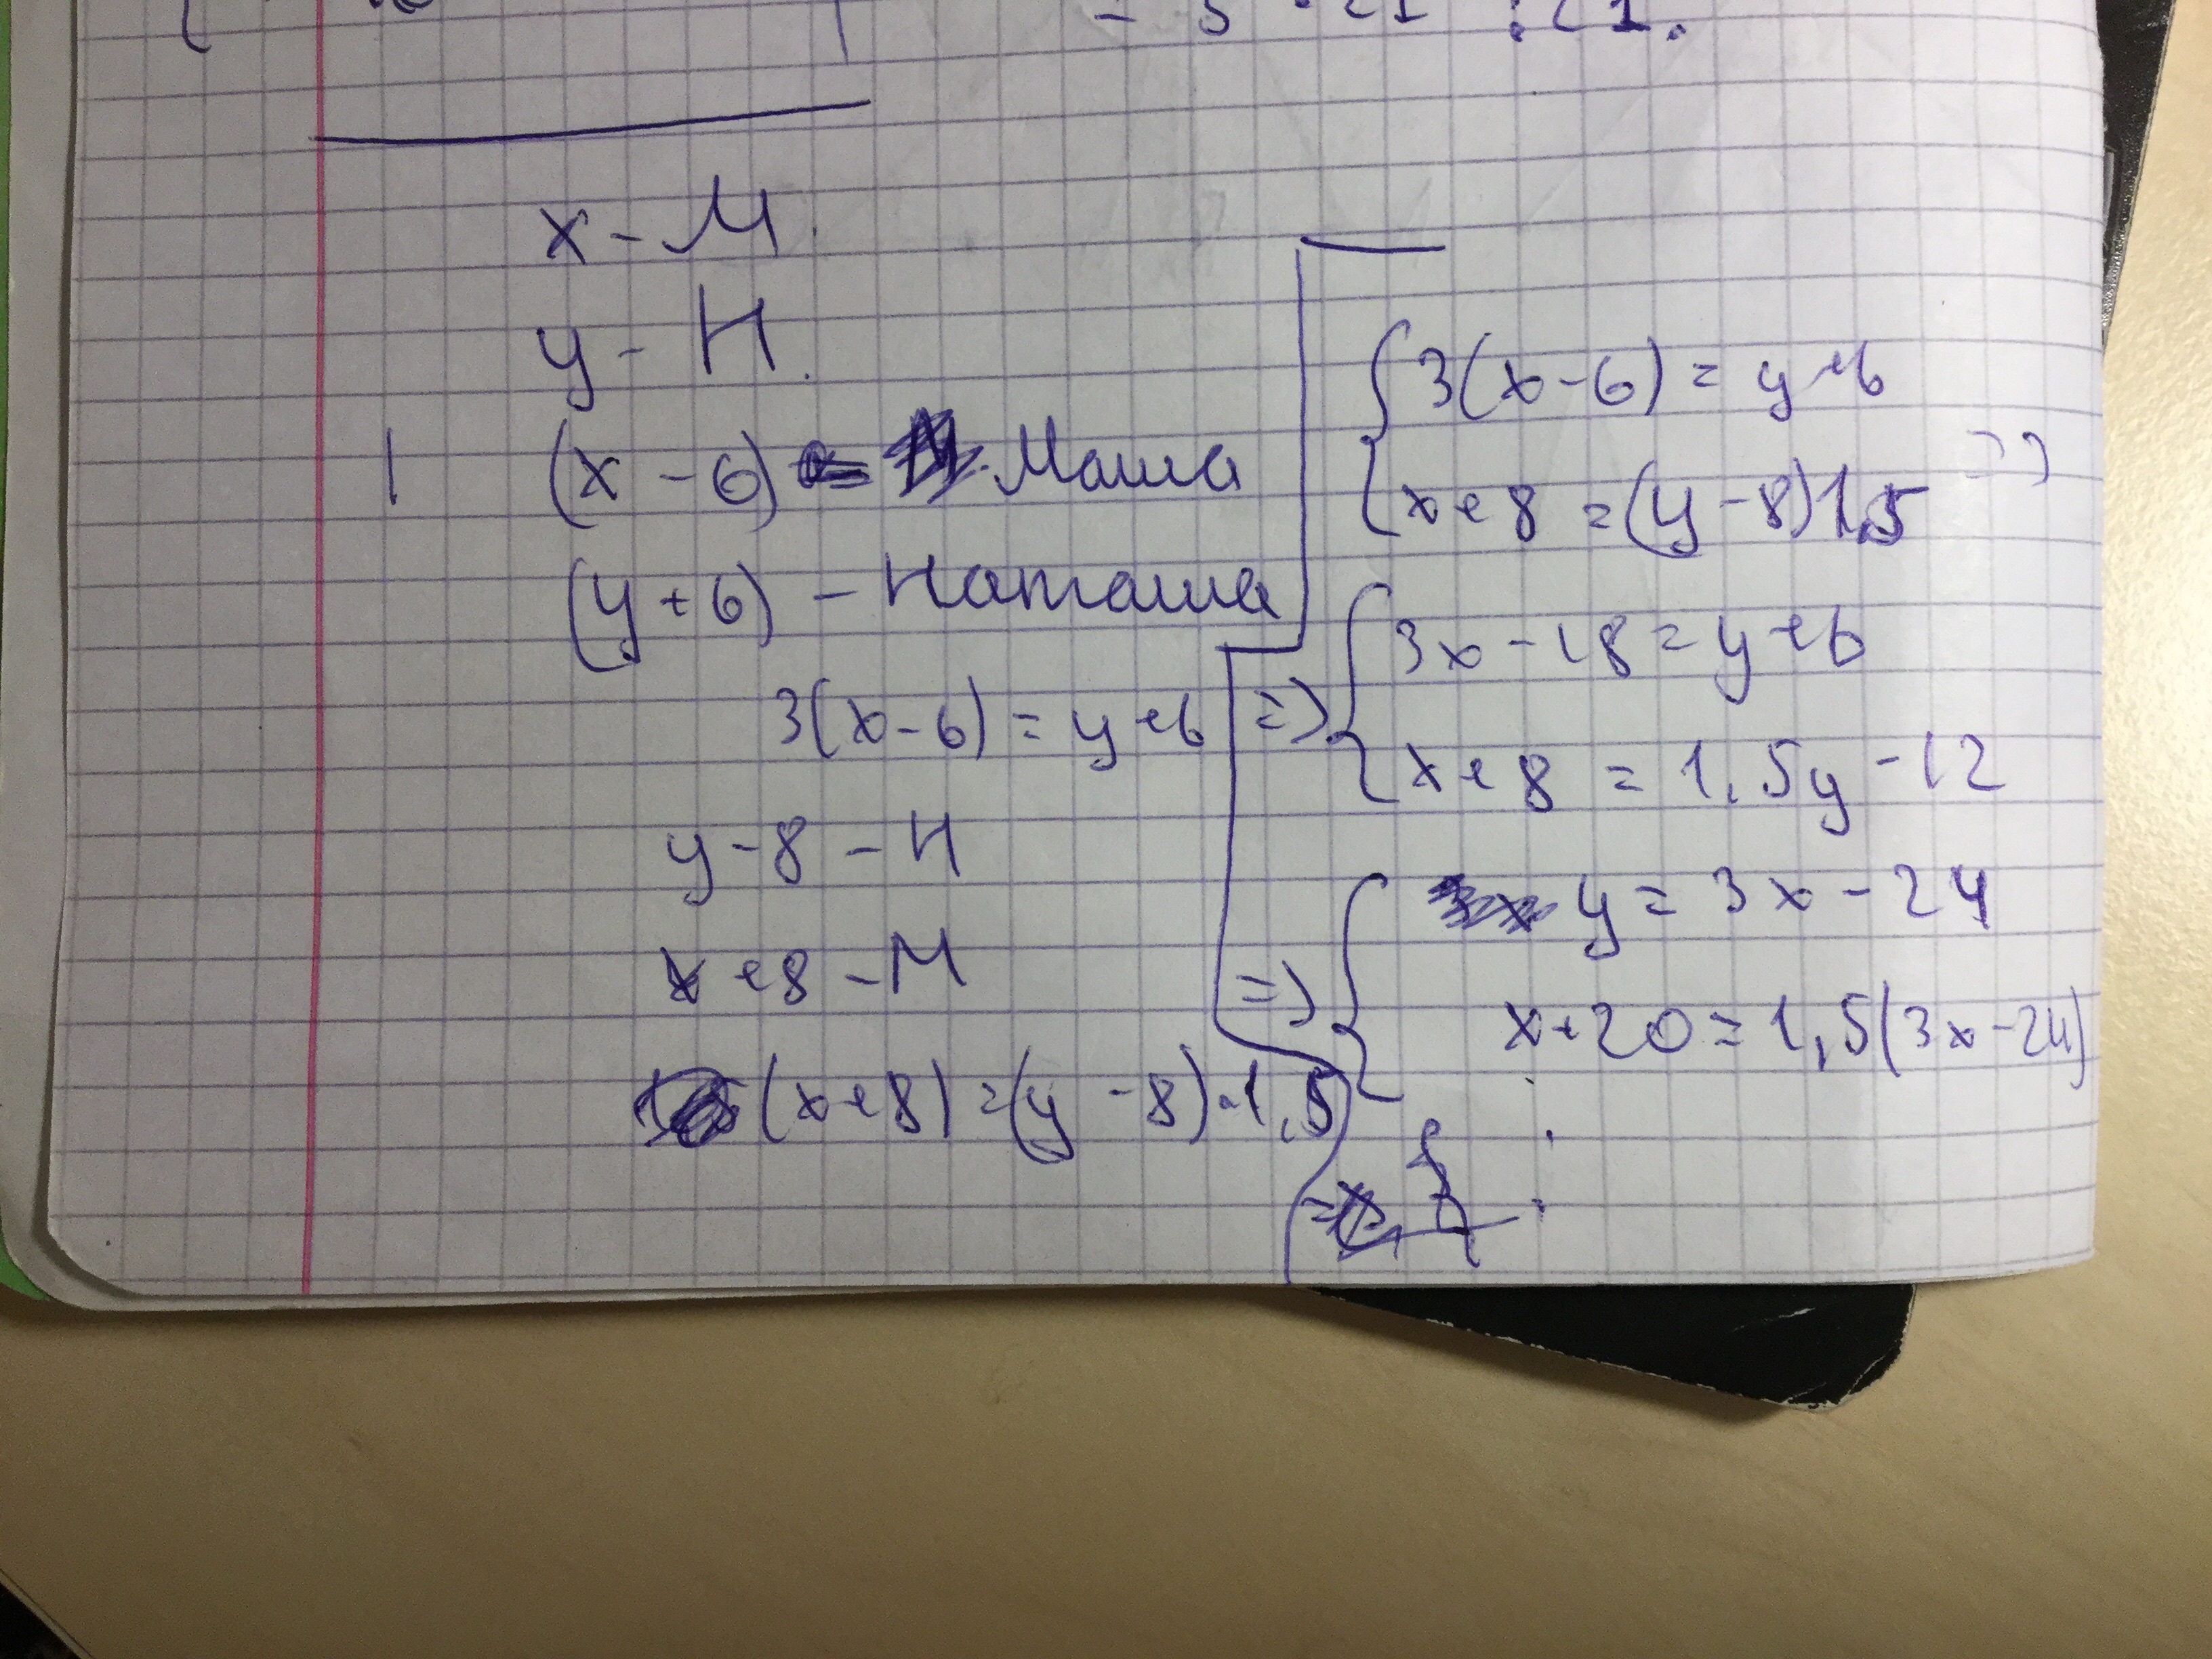 = 5 · 21 : 21.
x - М.
y - Н.
1 (x - 6) - Маша
(y + 6) - Наташа
3(x - 6) = y + 6
y - 8 - Н
x + 8 - М
(x + 8) = (y - 8) · 1,5
{ 3(x - 6) = y + 6
x + 8 = (y - 8) 1,5 =>
=> { 3x - 18 = y + 6
x + 8 = 1,5y - 12
=> { y = 3x - 24
x + 20 = 1,5(3x - 24)